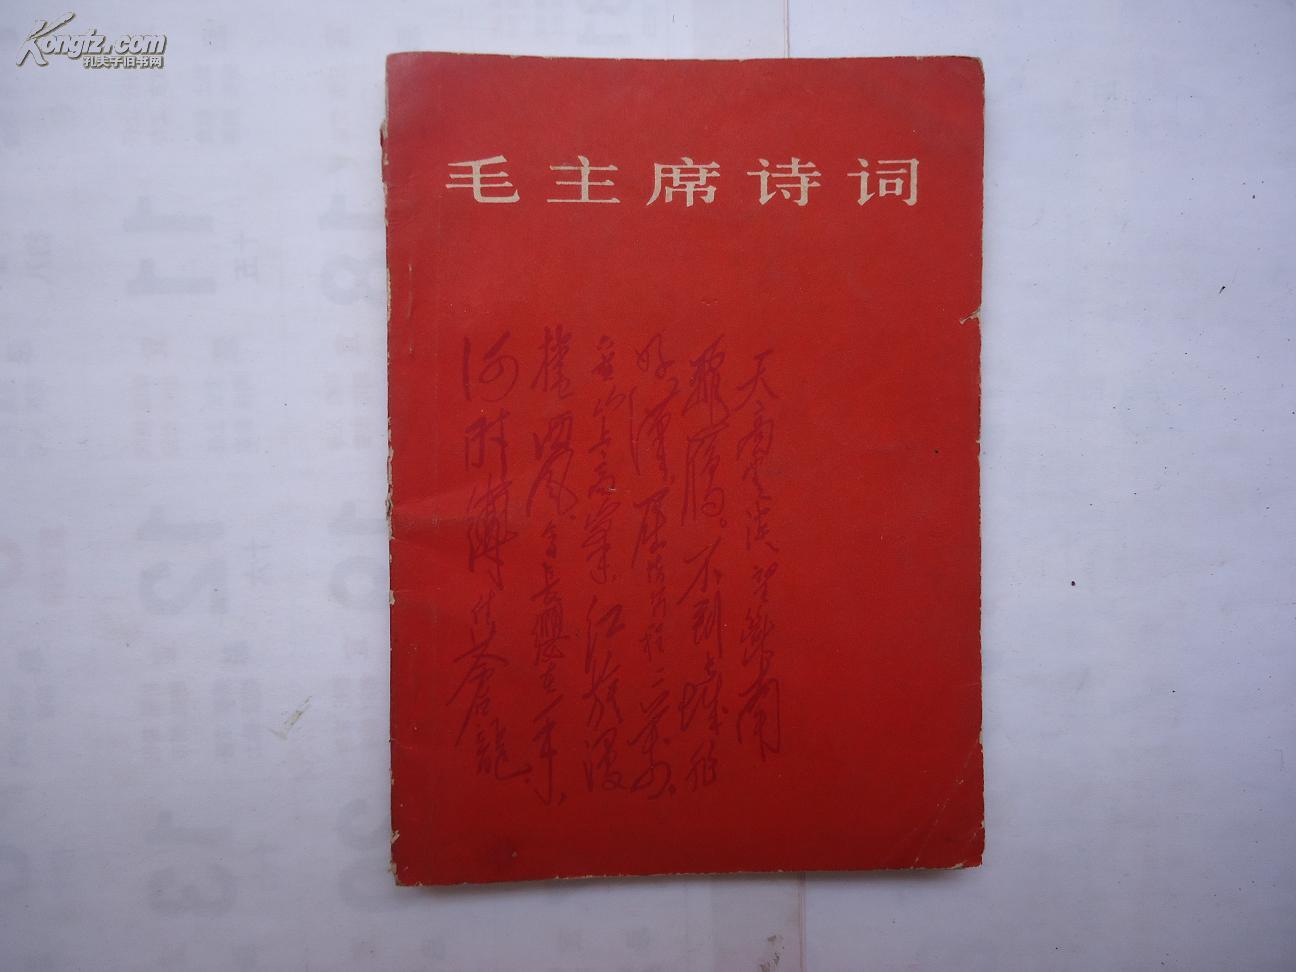 Kongfz.com
孔夫子旧书网
毛主席诗词
天高云淡望断南
飛雁。不到长城非
好漢屈指行程二万。
六盘山上高峰红旗漫
捲西风今日长缨在手，
何时縛住蒼龍